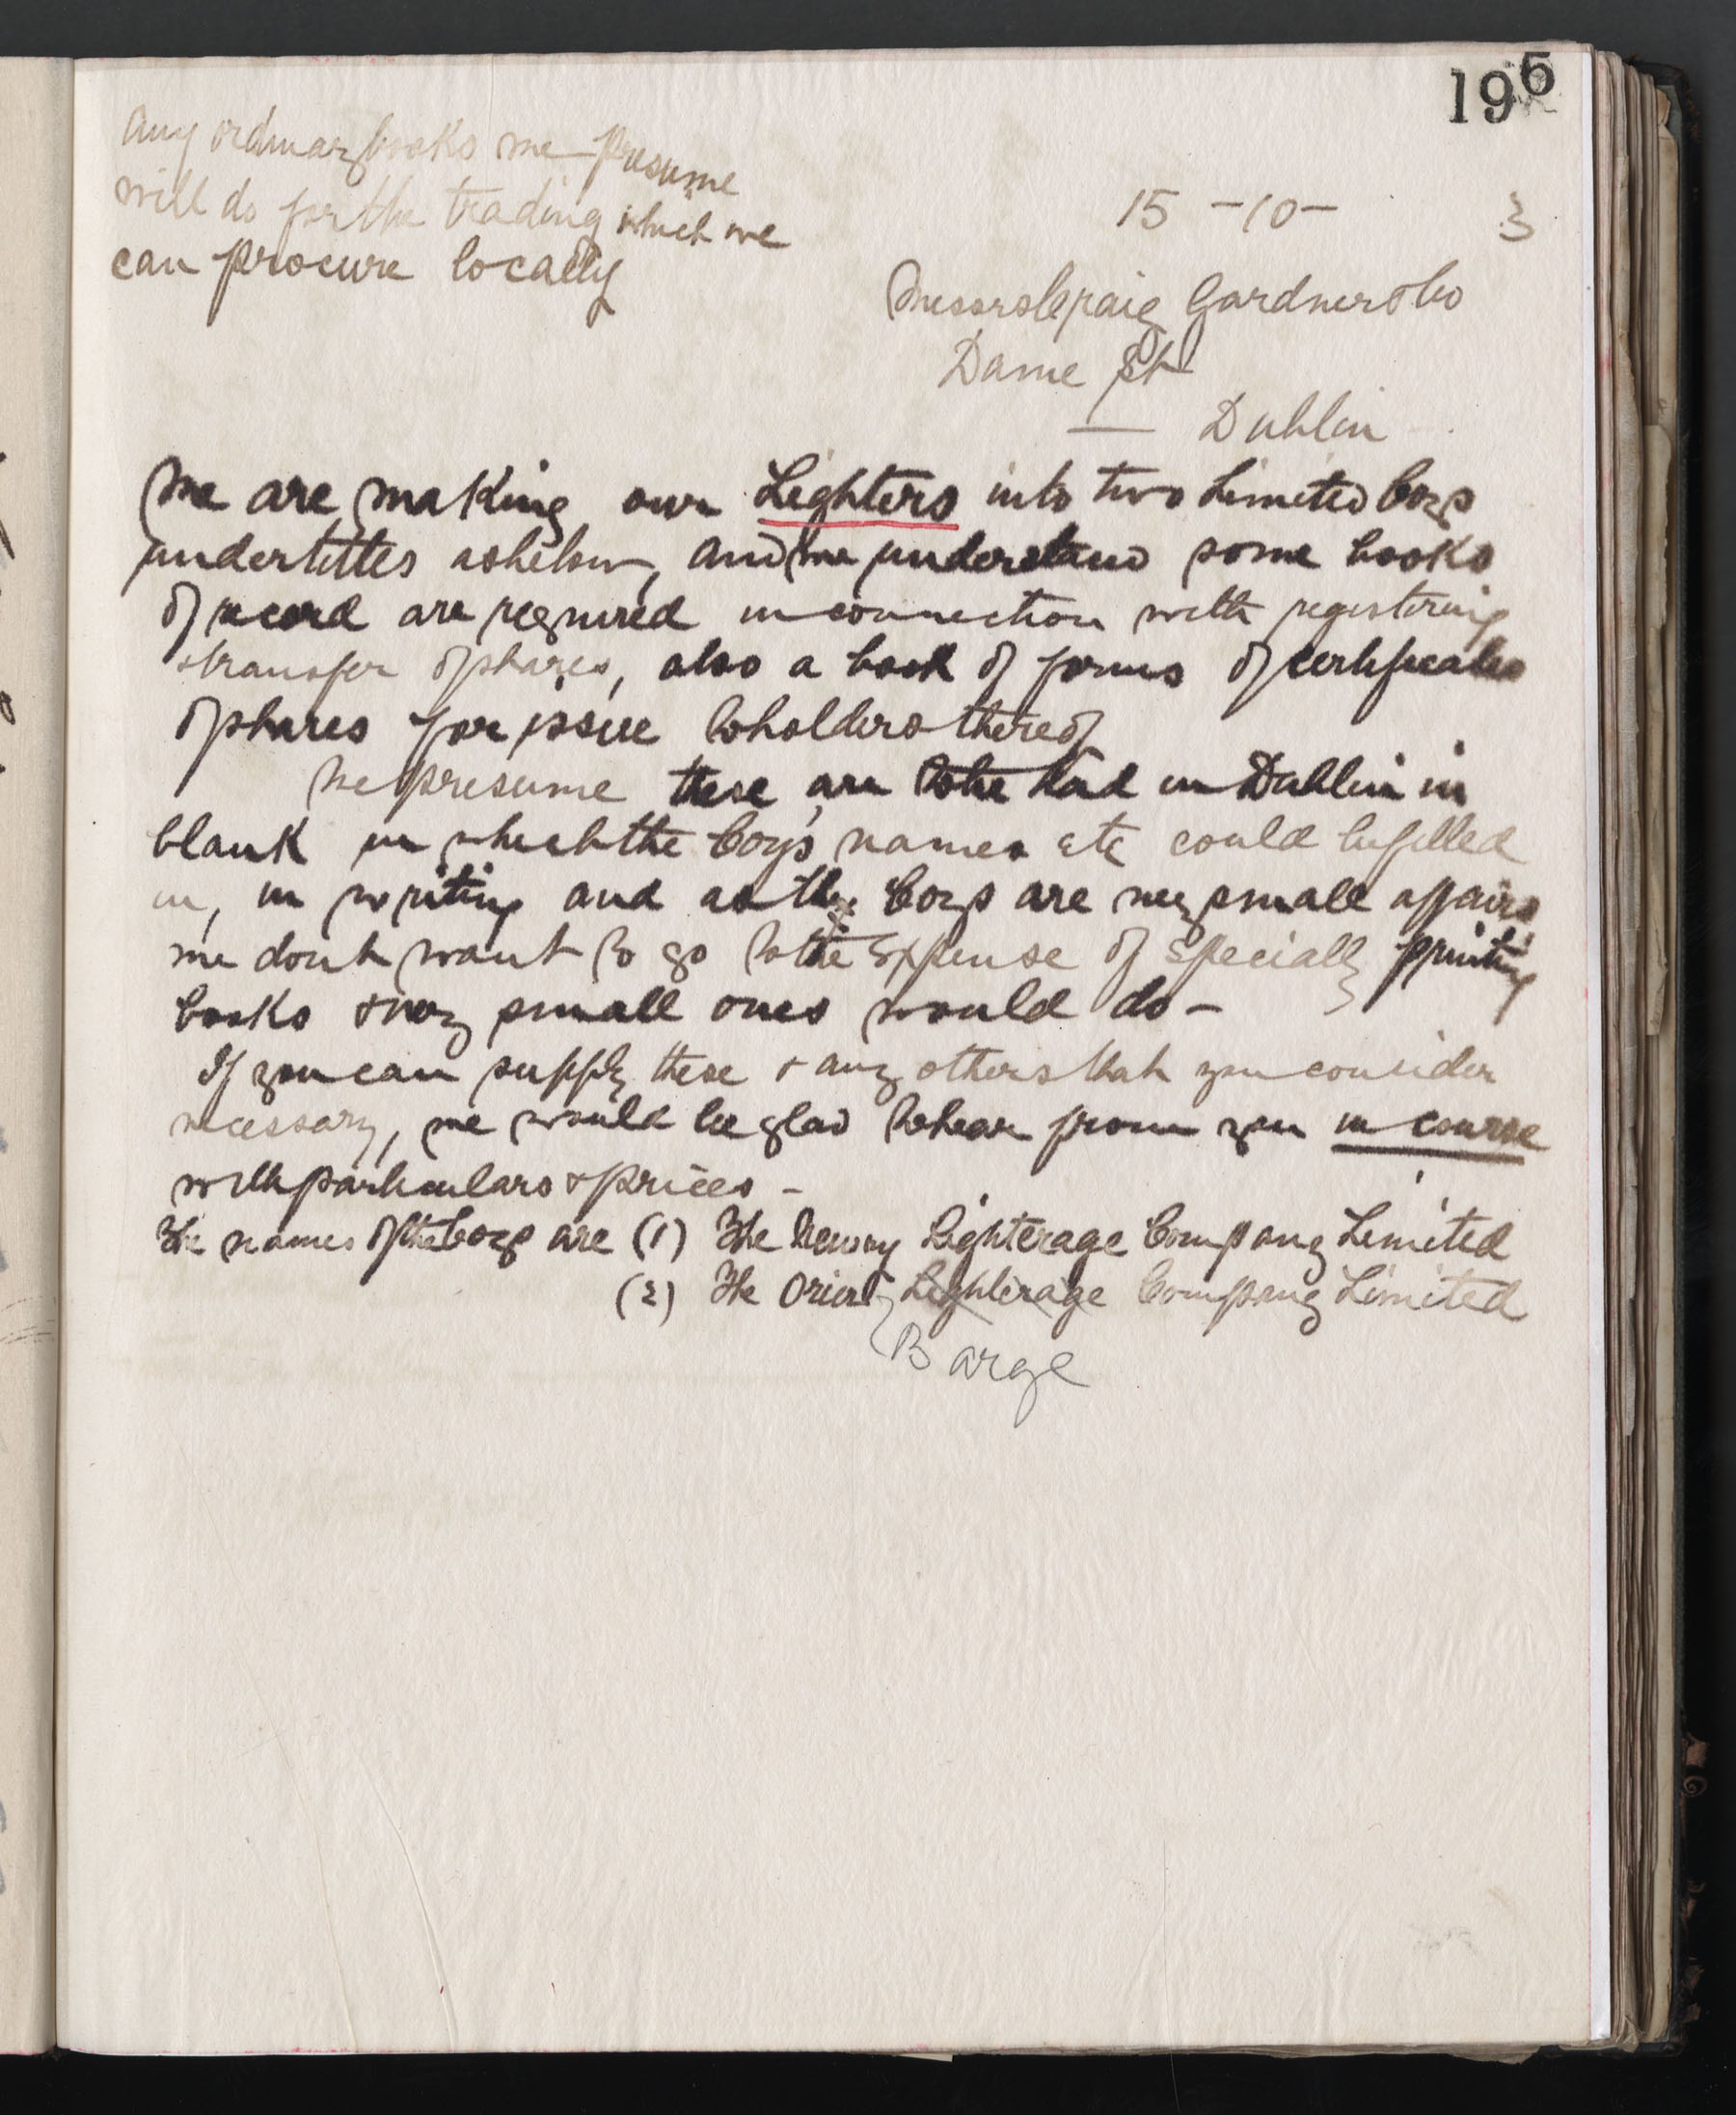 196
Any ordinary books we presume
will do for the trading which we
can procure locally
15 - 10 - 3
Messrs Craig Gardner & Co
Dame St
Dublin
We are making our Lighters into two Limited Coys
under titles as below, and we understand some books
of record are required in connection with registering
& transfer of shares, also a book of forms of certificates
of shares for issue to holders thereof
We presume these are to be had in Dublin in
blank in which the Coy's names etc could be filled
in, in writing and as the Coys are very small affairs
we dont want to go to the expense of specially printing
books & very small ones would do -
If you can supply these & any others that you consider
necessary, we would be glad to hear from you in course
with particulars & prices -
The names of the Coys are (1) The Newry Lighterage Company Limited
(2) The Orient Lighterage Company Limited
Barge